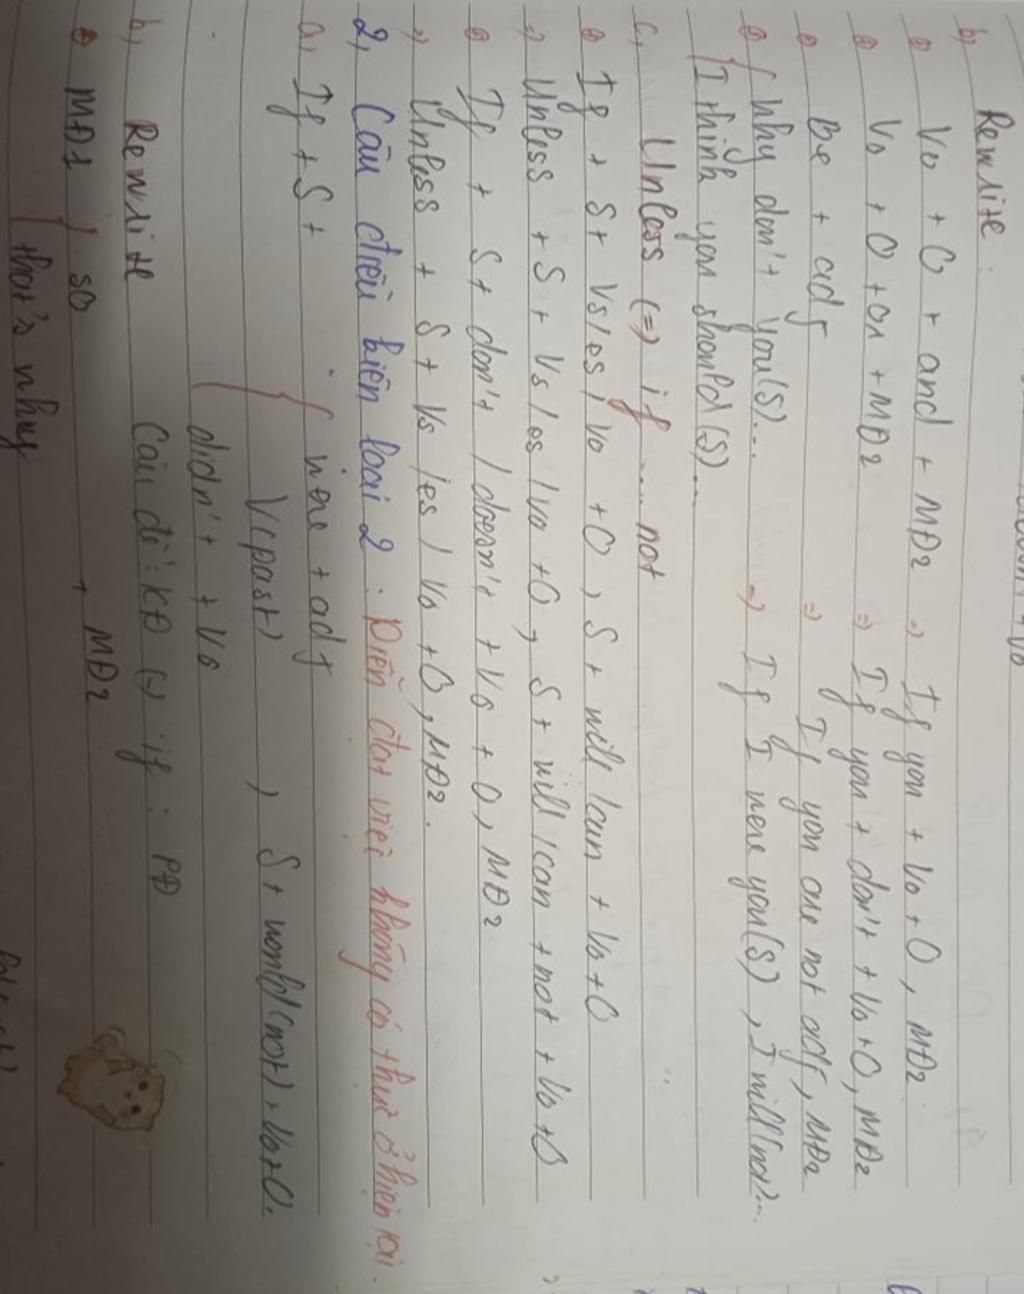 b, Rewrite
V0 + O + and + MĐ2 => If you + V0 + O, MĐ2
V0 + O + or + MĐ2 => If you + don't + V0 + O, MĐ2
Be + adj => If you are not adj, MĐ2
Why don't you(S)... => If I were you(S), I will(not)...
I think you should(S)...
c, Unless (=) if .... not
If + S + Vs/es/V0 + O, S + will/can + V0 + O
=) Unless + S + Vs/es/V0 + O, S + will/can + not + V0 + O
If + S + don't/doesn't + V0 + O, MĐ2
=) Unless + S + Vs/es/V0 + O, MĐ2.
2, Câu điều kiện loại 2: Diễn đạt việc không có thực ở hiện tại.
a, If + S + were + adj
V(past), S + would(not) + V0 + O.
didn't + V0
b, Rewrite Câu đề: KĐ (=) if: PĐ
MĐ1 so + MĐ2
that's why